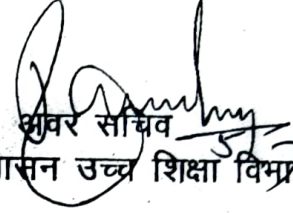 अवर सचिव
सन उच्च शिक्षा विभा